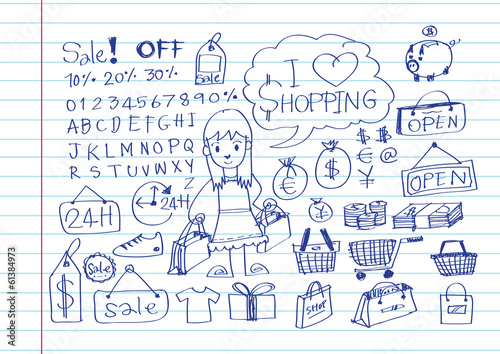 Sale! OFF
10% 20% 30%
Sale
0 1 2 3 4 5 6 7 8 9 0 %
A B C D E F G H I
J K L M N O P Q
R S T U V W X Y
Z
I ♡
$HOPPING
OPEN
$ $
€ @
¥
€
$
¥
OPEN
24H
24H
Sale
$
Sale
SHOP
Adobe Stock | #61384973